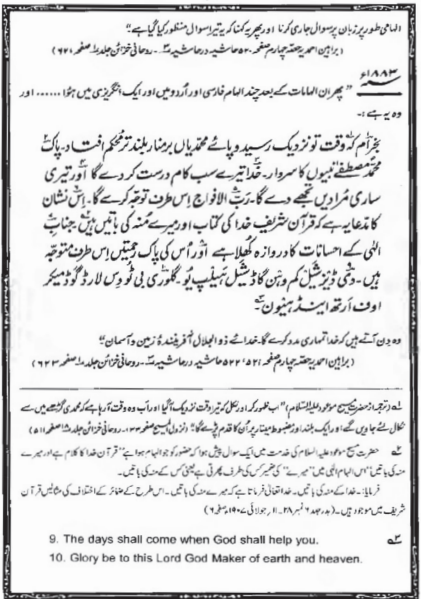 الہامی طور پر زبان پر سوال جاری کرنا اور پھر یہ کہنا کہ یہ تیرا سوال منظور کیا گیا ہے"
(براہین احمدیہ حصہ چہارم صفحہ ۵۲۰ حاشیہ در حاشیہ ۳۔ روحانی خزائن جلد ۱ صفحہ ۶۲۱)
۱۸۸۳ء
"پھر ان الہامات کے بعد چند الہام فارسی اور اُردو میں اور ایک انگریزی میں ہوا ...... اور
وہ یہ ہے:۔
بخرام کہ وقتِ تو نزدیک رسید و پائے محمدیاں بر منار بلند تر محکم افتاد۔ پاک
محمد مصطفےٰ نبیوں کا سردار۔ خدا تیرے سب کام درست کر دے گا اور تیری
ساری مرادیں تجھے دے گا۔ ربّ الافواج اس طرف توجہ کرے گا۔ اِس نشان
کا مدعا یہ ہے کہ قرآن شریف خدا کی کتاب اور میرے مُنہ کی باتیں ہیں۔ جنابِ
الٰہی کے احسانات کا دروازہ کھلا ہے اور اُس کی پاک رحمتیں اِس طرف متوجہ
ہیں۔ دِی ڈیز شیل کم وہن گاڈ شیل ہیلپ یُو۔ گلوری بی ٹو دِس لارڈ گوڈ میکر
اوف ارتھ اینڈ ہیون۔
وہ دن آتے ہیں کہ خدا تمہاری مدد کرے گا۔ خدائے ذوالجلال آفرینندۂ زمین و آسمان"
(براہین احمدیہ حصہ چہارم صفحہ ۵۲۱، ۵۲۲ حاشیہ در حاشیہ ۳۔ روحانی خزائن جلد ۱ صفحہ ۶۲۳)
۱؎ (ترجمہ از حضرت مسیح موعود علیہ السلام) "اب ظہور کر اور نکل کہ تیرا وقت نزدیک آ گیا اور اب وہ وقت آ رہا ہے کہ محمدی گڑھے میں سے
نکال لئے جاویں گے اور ایک بلند اور مضبوط مینار پر اُن کا قدم پڑے گا" (نزول المسیح صفحہ ۱۳۳۔ روحانی خزائن جلد ۱۸ صفحہ ۵۱۱)
۲؎ حضرت مسیح موعود علیہ السلام کی خدمت میں ایک سوال پیش ہوا کہ حضور کو جو الہام ہوا ہے "قرآن خدا کا کلام ہے اور میرے
منہ کی باتیں" اس الہام الٰہی میں "میرے" کی ضمیر کس کی طرف پھرتی ہے یعنی کس کے منہ کی باتیں۔
فرمایا۔ خدا کے منہ کی باتیں۔ خدا تعالیٰ فرماتا ہے کہ میرے منہ کی باتیں۔ اس طرح کے ضمائر کے اختلاف کی مثالیں قرآن
شریف میں موجود ہیں۔ (بدر جلد ۶ نمبر ۲۸۔ ۱۱ جولائی ۱۹۰۷ء صفحہ ۶)
۳؎ 9. The days shall come when God shall help you.
10. Glory be to this Lord God Maker of earth and heaven.